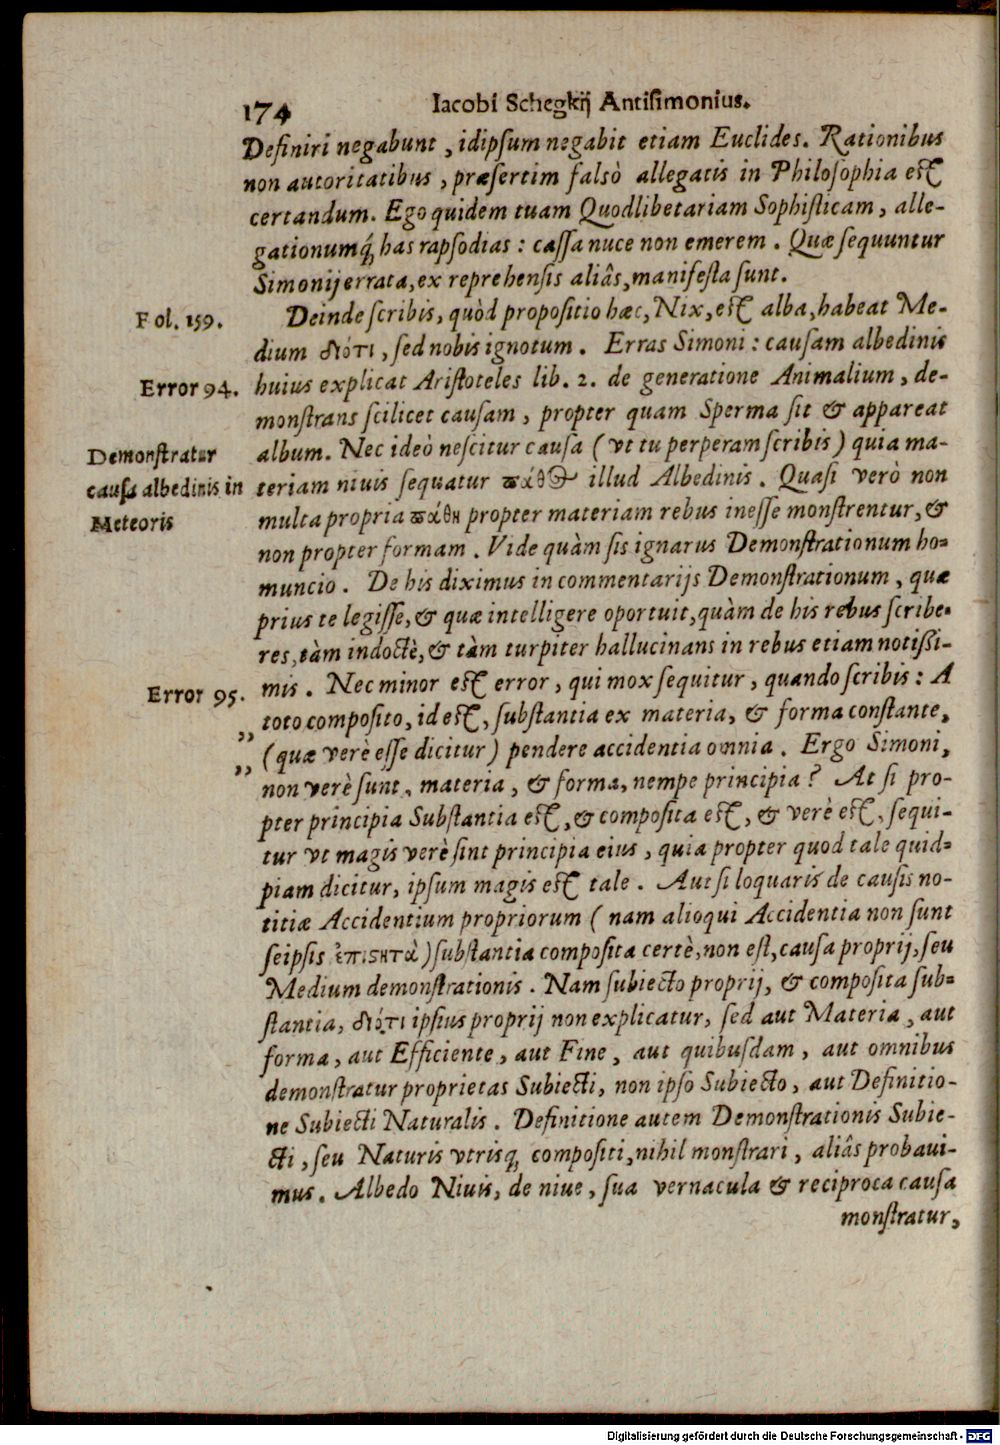 174
Iacobi Schegkij Antisimonius.
Definiri negabunt, idipsum negabit etiam Euclides. Rationibus
non autoritatibus, præsertim falsò allegatis in Philosophia est
certandum. Ego quidem tuam Quodlibetariam Sophisticam, alle-
gationumq́; has rapsodias: cassa nuce non emerem. Quæ sequuntur
Simonij errata, ex reprehensis aliâs, manifesta sunt.
Fol. 159.
Deinde scribis, quòd propositio hæc, Nix, est alba, habeat Me-
dium διότι, sed nobis ignotum. Erras Simoni: causam albedinis
Error 94.
huius explicat Aristoteles lib. 2. de generatione Animalium, de-
monstrans scilicet causam, propter quam Sperma sit & appareat
Demonstratur
causa albedinis in
Meteoris
album. Nec ideò nescitur causa (vt tu perperam scribis) quia ma-
teriam niuis sequatur πάθος illud Albedinis. Quasi verò non
multa propria πάθη propter materiam rebus inesse monstrentur, &
non propter formam. Vide quàm sis ignarus Demonstrationum ho-
muncio. De his diximus in commentarijs Demonstrationum, quæ
prius te legisse, & quæ intelligere oportuit, quàm de his rebus scribe-
res, tàm indoctè, & tàm turpiter hallucinans in rebus etiam notißi-
Error 95.
mis. Nec minor est error, qui mox sequitur, quando scribis: A
,, toto composito, id est, substantia ex materia, & forma constante,
,, (quæ verè esse dicitur) pendere accidentia omnia. Ergo Simoni,
non verè sunt, materia, & forma, nempe principia? At si pro-
pter principia Substantia est, & composita est, & verè est, sequi-
tur vt magis verè sint principia eius, quia propter quod tale quid-
piam dicitur, ipsum magis est tale. Aut si loquaris de causis no-
titiæ Accidentium propriorum (nam alioqui Accidentia non sunt
seipsis ἐπιστητὰ) substantia composita certè, non est, causa proprij, seu
Medium demonstrationis. Nam subiecto proprij, & composita sub-
stantia, διότι ipsius proprij non explicatur, sed aut Materia, aut
forma, aut Efficiente, aut Fine, aut quibusdam, aut omnibus
demonstratur proprietas Subiecti, non ipso Subiecto, aut Definitio-
ne Subiecti Naturalis. Definitione autem Demonstrationis Subie-
cti, seu Naturis vtrisq; compositi, nihil monstrari, aliâs probaui-
mus. Albedo Niuis, de niue, sua vernacula & reciproca causa
monstratur,
Digitalisierung gefördert durch die Deutsche Forschungsgemeinschaft - DFG